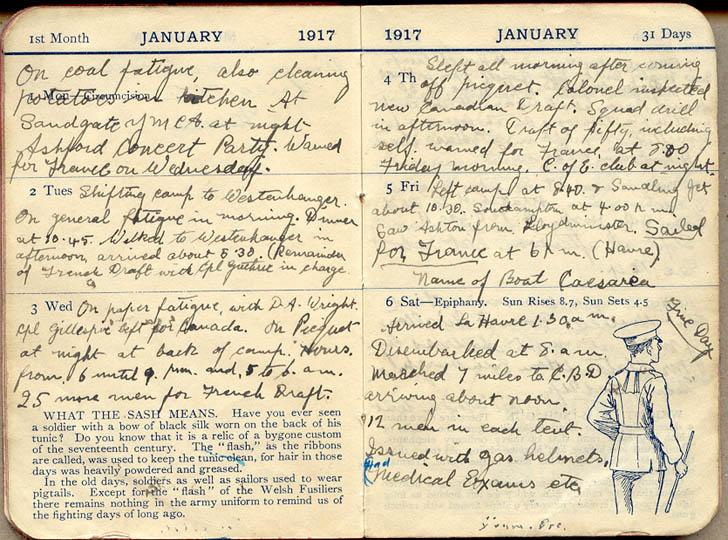 1st Month JANUARY 1917
On coal fatigue, also cleaning
1 Mon—Circumcision
potatoes in kitchen At
Sandgate Y M C A. at night
Ashford Concert Party. Warned
for Travel on Wednesday.
2 Tues Shifting camp to Westenhanger.
On general fatigue in morning. Dinner
at 10.45. Walked to Westenhanger in
afternoon, arrived about 3 30 (Remainder
of French Draft with Cpl Guthrie in charge.
3 Wed On paper fatigue, with D.A. Wright.
Cpl Gillespie left for Canada. On Picquet
at night at back of camp. Hours.
from 6 until 9. p.m. and, 5 to 6 a.m.
25 more men for French Draft.
WHAT THE SASH MEANS. Have you ever seen
a soldier with a bow of black silk worn on the back of his
tunic? Do you know that it is a relic of a bygone custom
of the seventeenth century. The "flash," as the ribbons
are called, was used to keep the tunic clean, for hair in those
days was heavily powdered and greased.
In the old days, soldiers as well as sailors used to wear
pigtails. Except for the "flash" of the Welsh Fusiliers
there remains nothing in the army uniform to remind us of
the fighting days of long ago.
1917 JANUARY 31 Days
4 Th Slept all morning after coming
off picquet. Colonel inspected
new Canadian Draft. Squad drill
in afternoon. Draft of fifty, including
self. warned for France, at 8.00
Friday morning. C. of E. club at night.
5 Fri Left camp at 8.40. & Sandling Jct
about 10.30. Southampton at 4.00 p.m.
Saw Ashton from Lloydminster. Sailed
for France at 6 p.m. (Havre)
Name of Boat Caesarea
6 Sat—Epiphany. Sun Rises 8.7, Sun Sets 4.5
Fine Day
Arrived La Havre 1.30 a.m.
Disembarked at 8. a.m.
Marched 7 miles to C.B.D
arriving about noon.
12 men in each tent.
Issued with gas helmets,
Had
Medical Exams etc